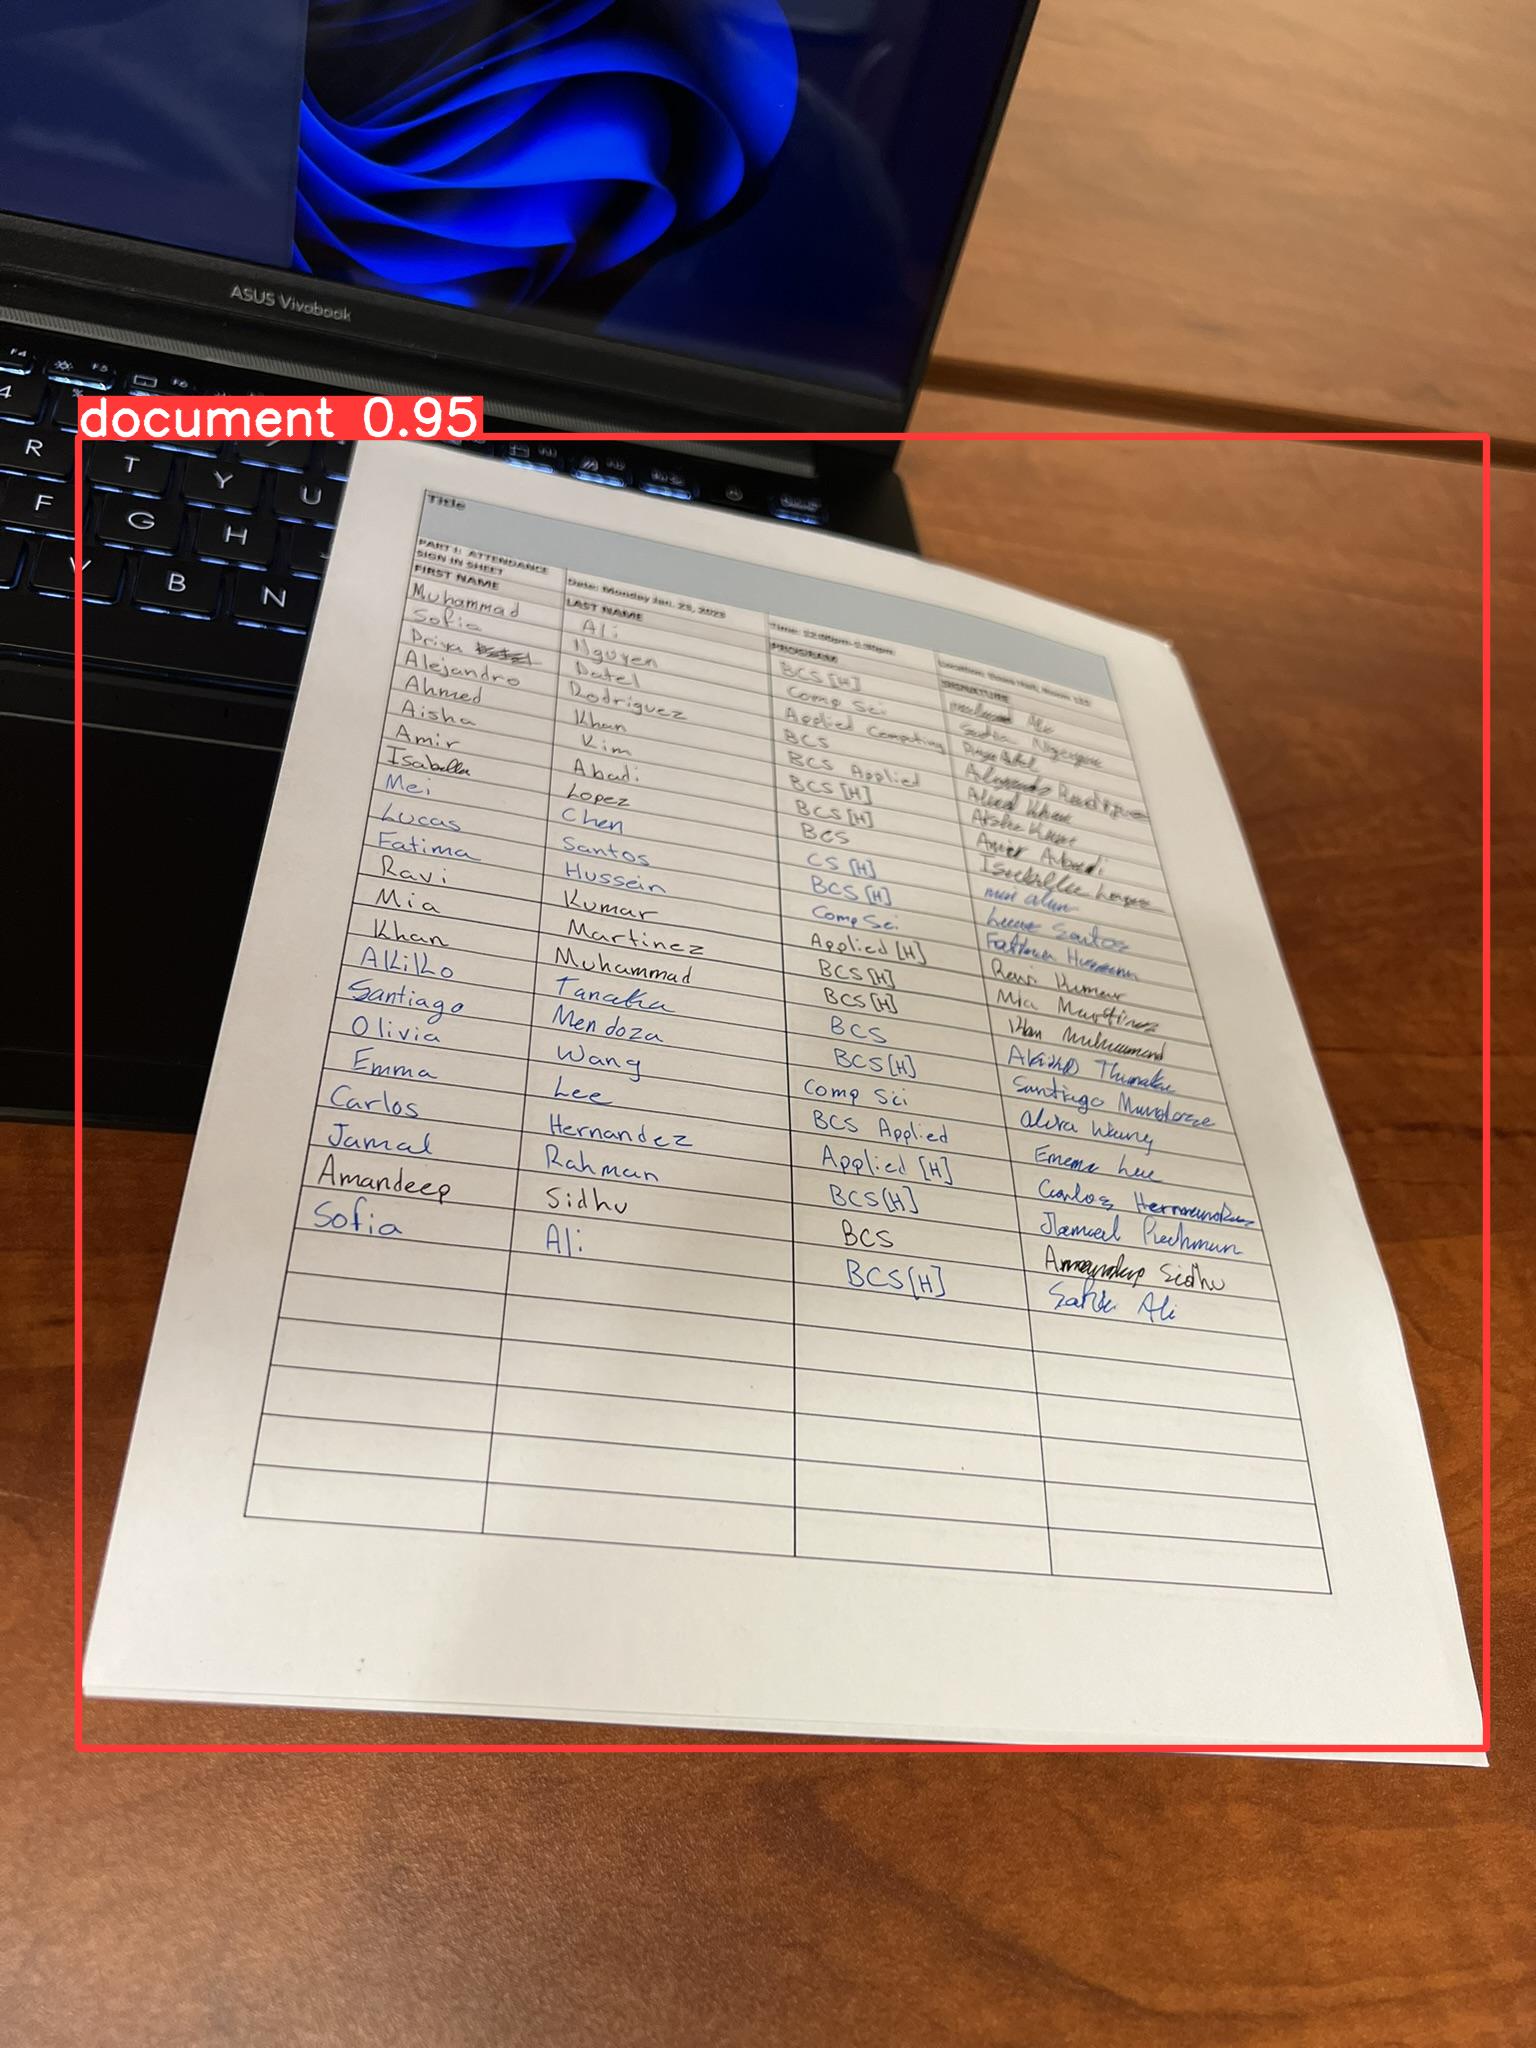 ASUS Vivobook
F4 F5 F6
4 %
R T Y U
F G H
V B N
document 0.95
Title
PART I: ATTENDANCE SIGN IN SHEET Date: Monday Jan. 23, 2023 Time:
FIRST NAME LAST NAME PROGRAM SIGNATURE
Muhammad Ali BCS [H] Ali
Sofia Nguyen Comp Sci Sofia Nguyen
Priya Patel Applied Computing
Alejandro Rodriguez BCS Alejandro Rodriguez
Ahmed Khan BCS Applied Ahmed Khan
Aisha Kim BCS [H] Aisha
Amir Abadi BCS [H] Amir Abadi
Isabella Lopez BCS Isabella Lopez
Mei Chen CS [H] mei
Lucas Santos BCS [H] Lucas Santos
Fatima Hussein Comp Sci Fatima Hussein
Ravi Kumar Applied [H] Ravi Kumar
Mia Martinez BCS [H] Mia Martinez
Khan Muhammad BCS [H] Khan Muhammad
Akiko Tanaka BCS
Santiago Mendoza BCS [H] Santiago Mendoza
Olivia Wang Comp Sci Wang
Emma Lee BCS Applied Emma Lee
Carlos Hernandez Applied [H] Carlos Hernandez
Jamal Rahman BCS [H] Jamal Rahman
Amandeep Sidhu BCS Sidhu
Sofia Ali BCS [H] Ali